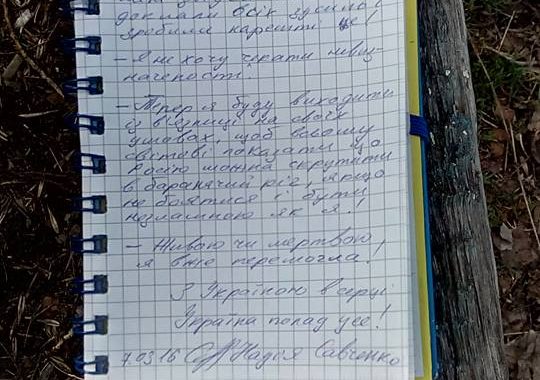 доклали всіх зусиль і
зробили нарешті це!
- Я не хочу чекати невиз-
наченості.
- Тепер я буду виходити
із в'язниці на своїх
умовах, щоб всьому
світові показати що
Росію можна скрутити
в баранячий ріг, якщо
не боятися і бути
незламною як я!
- Живою чи мертвою
я вже перемогла!
З Україною в серці
Україна понад усе!
7.03.16 Надія Савченко